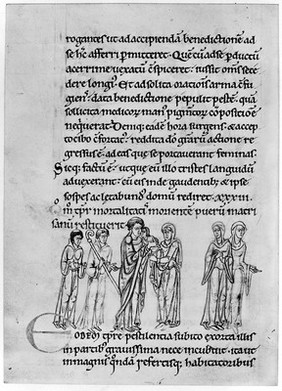 rogans est ut ad accipiendã benedictionẽ ad
se hẽ afferri pmitteret. Que cũ ad se pductũ
acerrime uexatũ cspiceret. iussit oms sece
dere longi. Et ad solita orationis arma cfu
giens. data benedictione pepulit pestẽ. quã
sollicita medicorũ man pigmtorũ cpositione
nequerat. Deniq; eadẽ hora surgens. & accep
to cibo cfortat. reddita dõ gratiarũ actione re
gressus ẽ ad eas que se portauerant feminas.
Sicq; factũ ẽ. ut que eũ illo tristes languidũ
aduexerant. cũ eis inde gaudentib; & ipse
sospes ac letabund domũ rediret. xxxiii.
tpr mortalitatis morientẽ puerũ matri
sanũ restituerit
Eodẽ tpre pestilentia subito exorta illis
in partib; grauissima nece incubuit. ita ut
in magnis quondã refertisq; habitatorib;